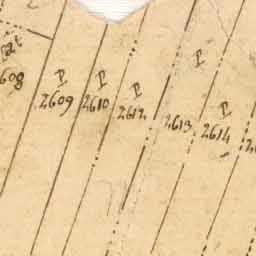 608
P
2609
P
2610
P
2612
P
2613
P
2614